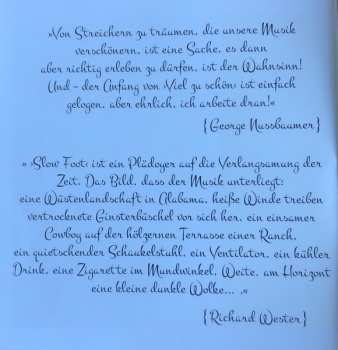 »Von Streichern zu träumen, die unsere Musik
verschönern, ist eine Sache, es dann
aber richtig erleben zu dürfen, ist der Wahnsinn!
Und – der Anfang von ›Viel zu schön‹ ist einfach
gelogen, aber ehrlich, ich arbeite dran!«
{George Nussbaumer}
» ›Slow Foot‹ ist ein Plädoyer auf die Verlangsamung der
Zeit. Das Bild, dass der Musik unterliegt:
eine Wüstenlandschaft in Alabama, heiße Winde treiben
vertrocknete Ginsterbüschel vor sich her, ein einsamer
Cowboy auf der hölzernen Terrasse einer Ranch,
ein quietschender Schaukelstuhl, ein Ventilator, ein kühler
Drink, eine Zigarette im Mundwinkel, Weite, am Horizont
eine kleine dunkle Wolke... .«
{Richard Wester}